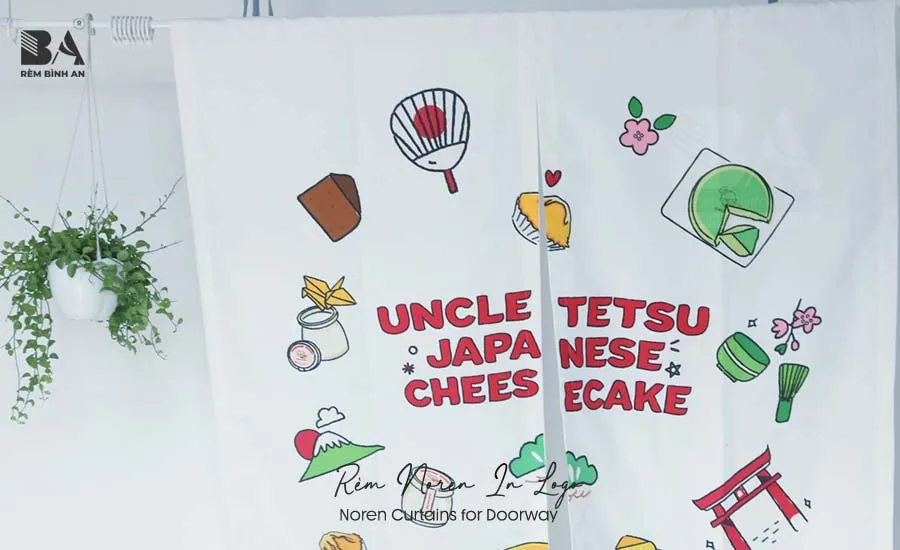 BA ®
RÈM BÌNH AN
UNCLE TETSU
JAPANESE
CHEESECAKE
Rèm Noren In Logo
Noren Curtains for Doorway